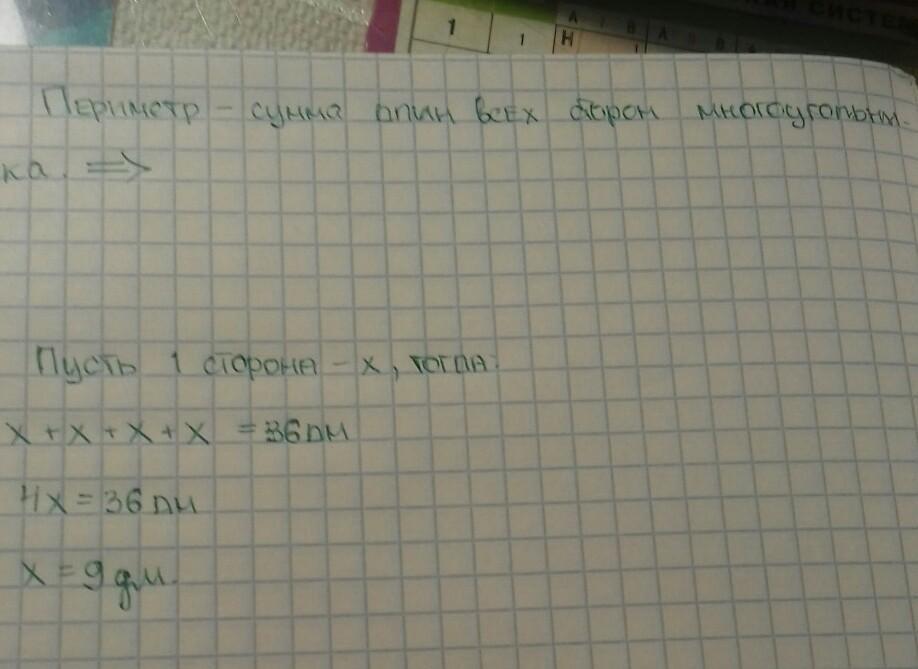 1 1 Н
А В А В
СИСТЕМ
Периметр – сумма длин всех сторон многоугольни-
ка. ⇒
Пусть 1 сторона – х, тогда:
х + х + х + х = 36дм
4х = 36дм
х = 9 дм.